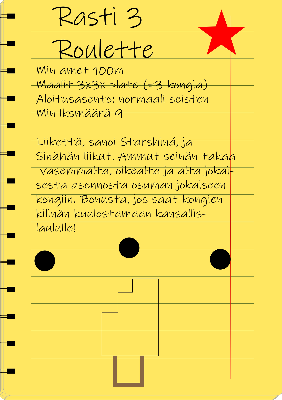 Rasti 3
Roulette
Min amet 100m
Maalit 3x3x plate (=3 kongia)
Aloitusasento: normaali seisten
Min lksmäärä 9
Liikettä, sanoi Starshina, ja
Sinähän liikut. Ammut seinän takaa
vasemmalta, oikealta ja alta jokai-
sesta asennosta osuman jokaiseen
kongiin. Bonusta, jos saat kongien
kilinän kuulostamaan kansallis-
laululle!